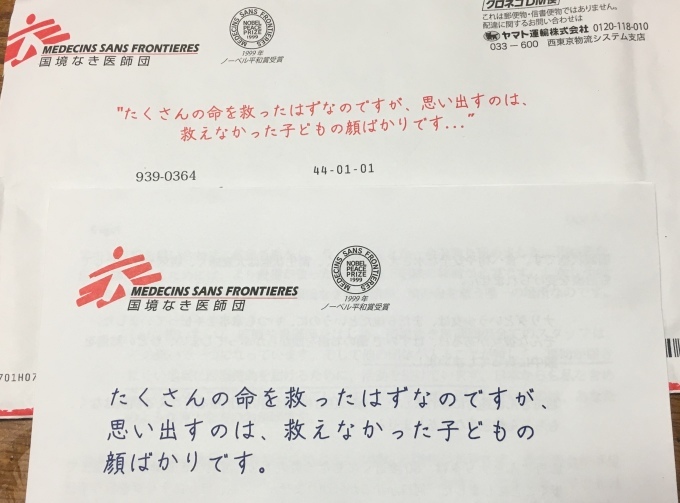 MEDECINS SANS FRONTIERES
国境なき医師団
NOBEL PEACE PRIZE 1999
1999年
ノーベル平和賞受賞
クロネコDM便
これは郵便物・信書便物ではありません。
配達に関するお問い合わせは
ヤマト運輸株式会社 0120-118-010
033-600 西東京物流システム支店
"たくさんの命を救ったはずなのですが、思い出すのは、
救えなかった子どもの顔ばかりです..."
939-0364
44-01-01
MEDECINS SANS FRONTIERES
国境なき医師団
MEDECINS SANS FRONTIERES
NOBEL PEACE PRIZE 1999
1999年
ノーベル平和賞受賞
701H07
たくさんの命を救ったはずなのですが、
思い出すのは、救えなかった子どもの
顔ばかりです。